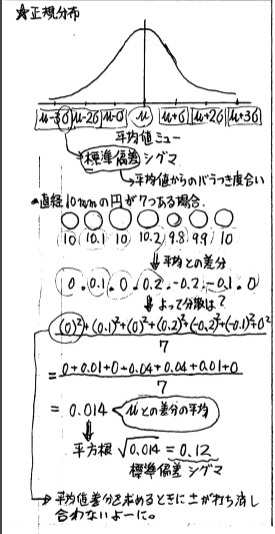 ☆正規分布
μ-3σ μ-2σ μ-σ μ μ+σ μ+2σ μ+3σ
平均値ミュー
標準偏差シグマ
→平均値からのバラつき度合い
・直径10mmの円が7つある場合.
10 10.1 10 10.2 9.8 9.9 10
↓平均との差分
0.0.1.0.0.2.-0.2.-0.1.0
↓よって分散は?
(0)²+(0.1)²+(0)²+(0.2)²+(-0.2)²+(-0.1)²+0²
7
= 0+0.01+0+0.04+0.04+0.01+0
7
= 0.014 μとの差分の平均
平方根 √0.014 = 0.12
標準偏差 シグマ
→平均値差分を求めるときに±が打ち消し
合わないよーに。